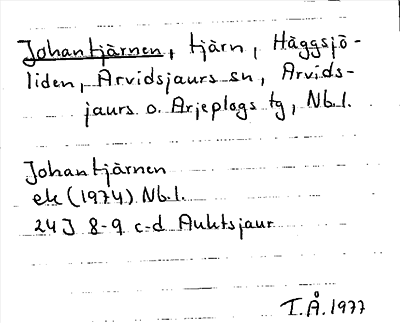 Johantjärnen, tjärn, Häggsjö-
liden, Arvidsjaurs sn, Arvids-
jaurs o. Arjeplogs tg, Nb.l.
Johantjärnen
ek (1974) Nb.l.
24J 8-9 c-d Auktsjaur
T.Å. 1977